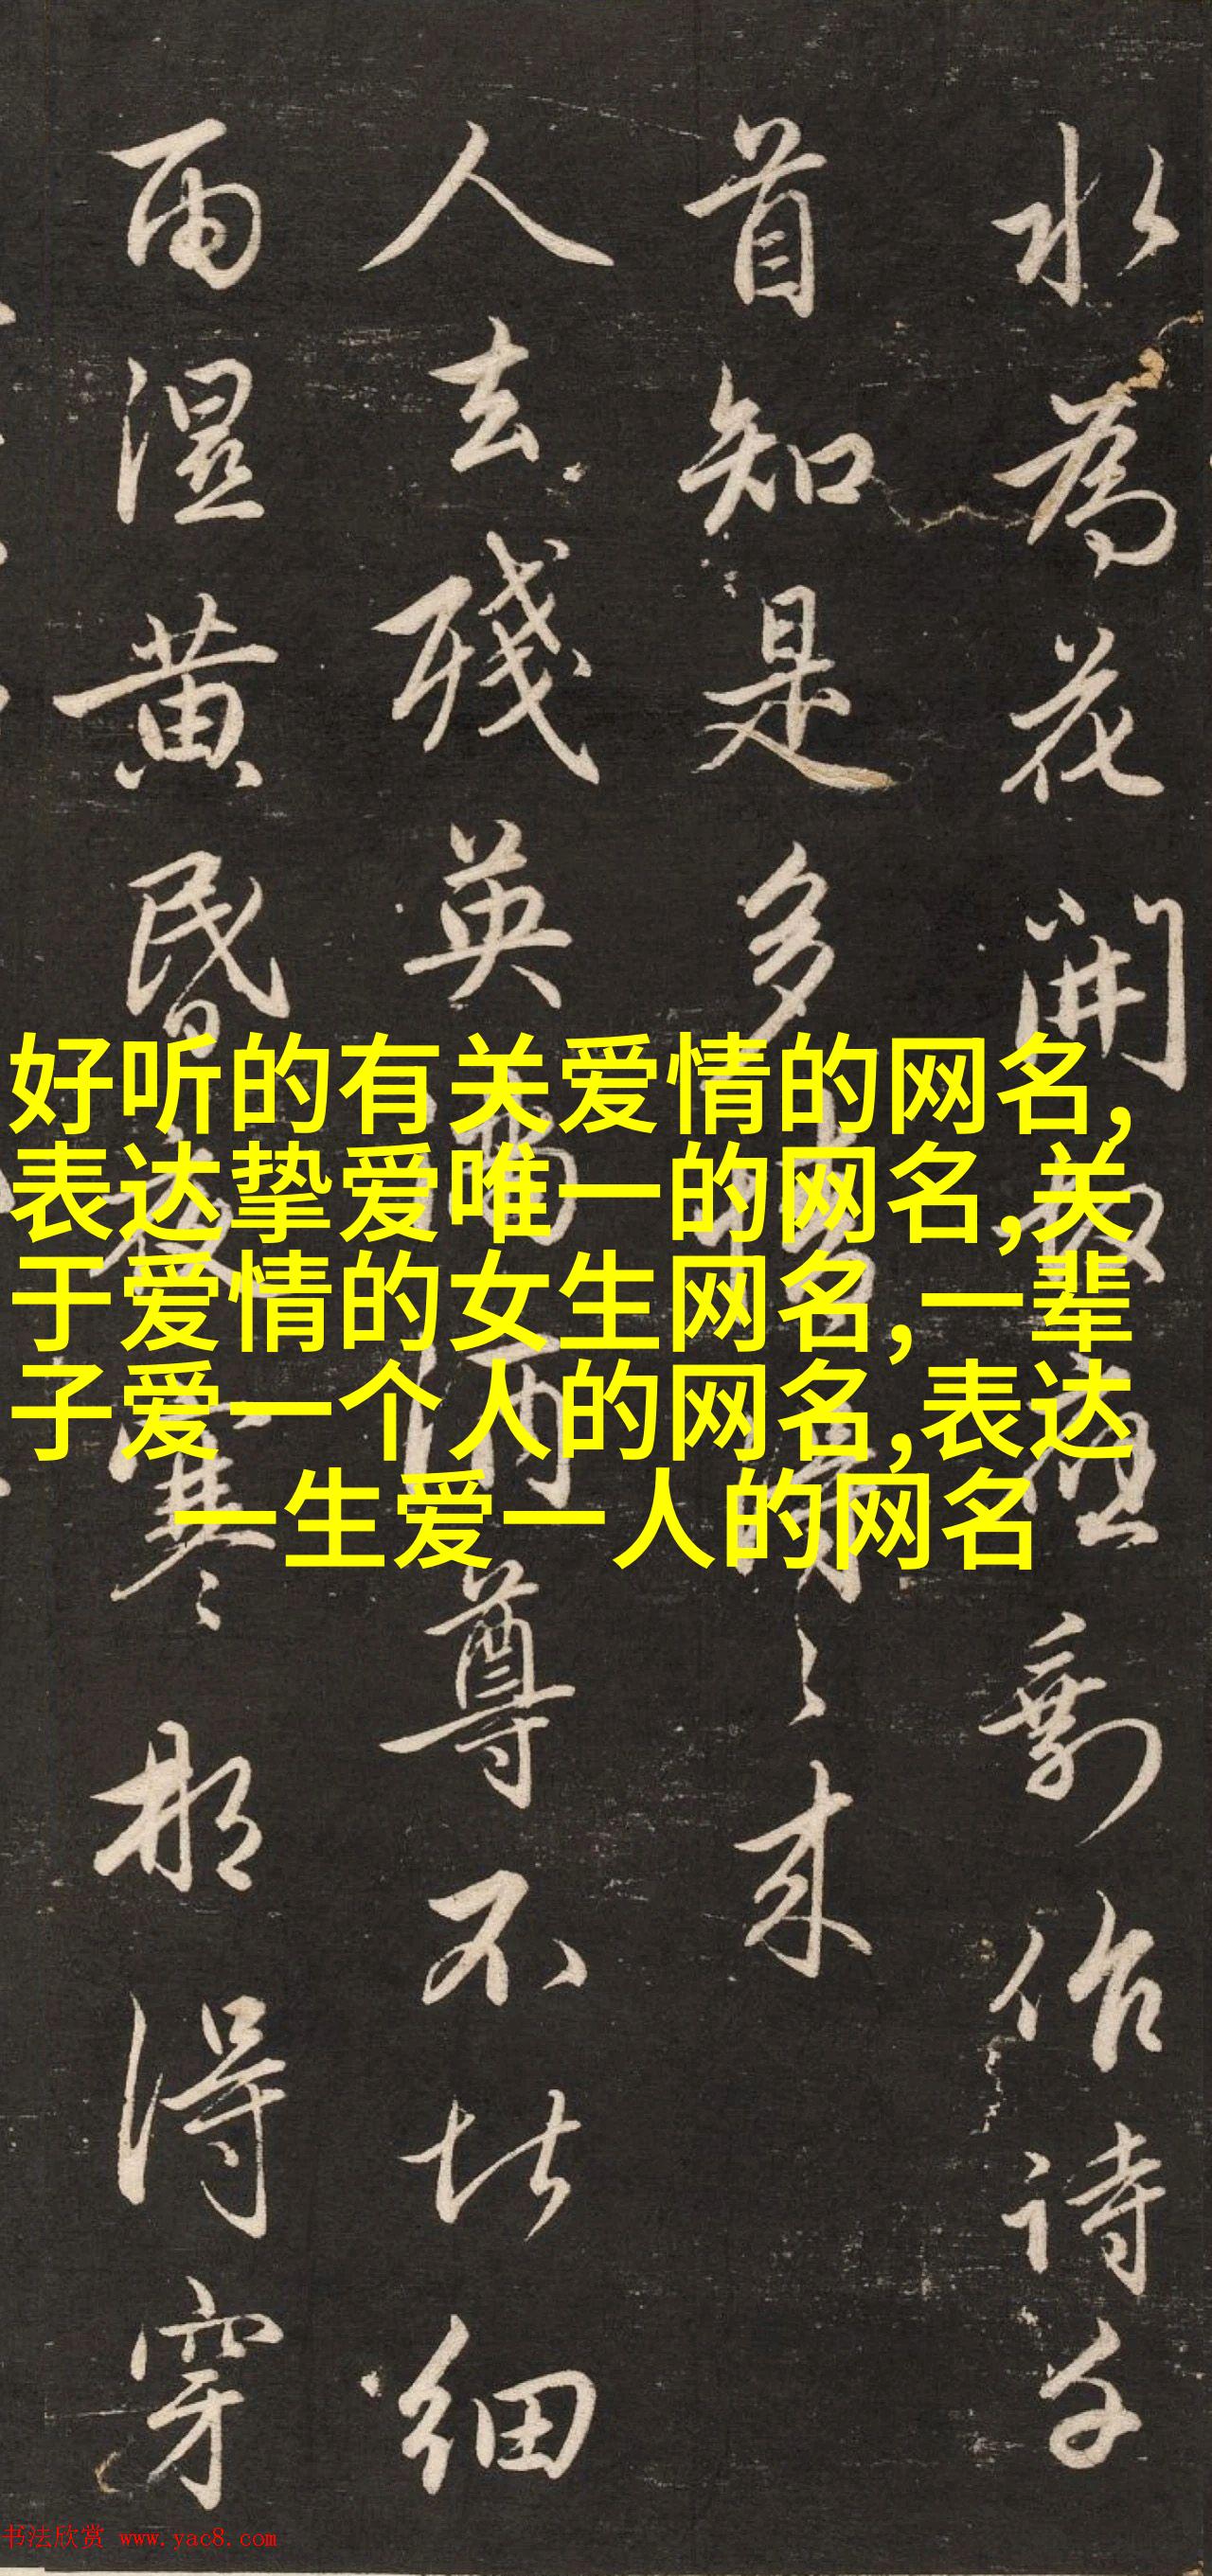 水為花開應剩作詩
首知是多情
人去殘英滿酒尊不堪細
雨濕黃昏夜寒那得穿
好听的有关爱情的网名,
表达挚爱唯一的网名,关
于爱情的女生网名,一辈
子爱一个人的网名,表达
一生爱一人的网名
书法欣赏 www.yac8.com